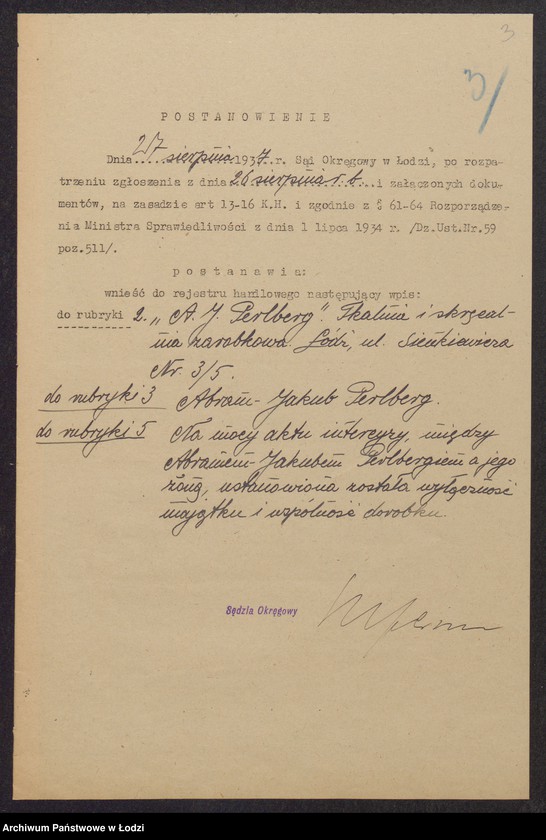 3
3/
POSTANOWIENIE
Dnia 27 sierpnia 1937.r. Sąd Okręgowy w Łodzi, po rozpa-
trzeniu zgłoszenia z dnia 26 sierpnia r.b. i załączonych doku-
mentów, na zasadzie art 13-16 K.H. i zgodnie z § 61-64 Rozporządze-
nia Ministra Sprawiedliwości z dnia 1 lipca 1934 r. /Dz.Ust.Nr.59
poz.511/.
postanawia:
wnieść do rejestru handlowego następujący wpis:
do rubryki 2. „A. J. Perlberg". Tkalnia i skręcal-
nia zarobkowa. Łódź, ul. Sienkiewicza
Nr. 3/5.
do rubryki 3 Abram-Jakub Perlberg.
do rubryki 5 Na mocy aktu intercyzy, między
Abramem-Jakubem Perlbergiem a jego
żoną, ustanowiona została wyłączność
majątku i wspólność dorobku.
Sędzia Okręgowy
Archiwum Państwowe w Łodzi